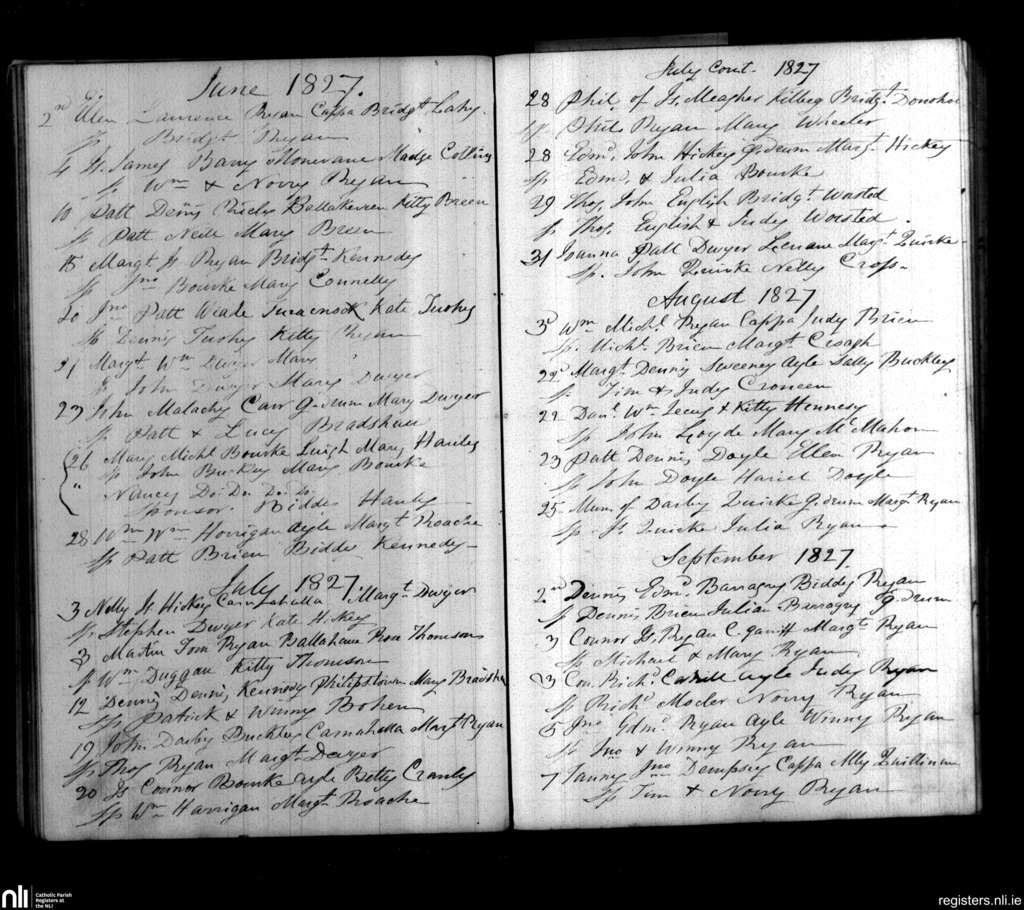 June 1827.
2nd Ellen Laurence Ryan Cappa Bridgt Lahy
Sp Bridgt Ryan
4 Js. James Barry Monevane Madge Collins
Sp Wm & Norry Ryan
10 Patt Dennis Kitty Breen
Sp Patt Neill Mary Breen
15 Margt Js Ryan Bridgt Kennedy
Sp Jno Bourke Mary Connelly
20 Jno Patt Weale Kate Tuohy
Sp Dennis Tuohy Kitty Ryan
21 Margt Wm Dwyer Mary
Sp John Dwyer Mary Dwyer
23 John Malachy Carr G.drum Mary Dwyer
Sp Patt & Lucy Bradshaw
26 Mary Michl Bourke Mary Hanly
Sp John Buckley Mary Bourke
" Nancy Do. Do. Do. Do.
Sponsor. Biddy Hanly
28 Wm Wm Horrigan Ayle Margt Roache
Sp Patt Brien Biddy Kennedy
July 1827.
3 Nelly Js Hickey Carnahalla Margt Dwyer
Sp. Stephen Dwyer Kate Hickey
3 Martin Tom Ryan Ballahane Thomson
Sp Wm Duggan Kitty Thomson
12 Dennis Dennis Kennedy Philipstown Mary Bradshaw
Sp Patrick & Winny Bohen
19 John Darby Buckley Carnahalla Margt Ryan
Sp Thos Ryan Margt Dwyer
20 Js Connor Bourke Ayle Betty Cranly
Sp Wm Harrigan Margt Roache
July Cont. 1827
28 Phil of Js. Meagher Killeg Bridgt Donohoe
Sp Phil Ryan Mary Wheeler
28 Edmd. John Hickey G.drum Margt Hickey
Sp Edmd. & Julia Bourke
29 Thos. John English Bridgt Worsted
Sp Thos. English & Judy Worsted
31 Joanna Patt Dwyer Margt Quirke
Sp. John Quirke Nelly Cross
August 1827
3d Wm Michl Ryan Cappa Judy Brien
Sp. Michl. Brien Margt Croagh
22d Margt Dennis Sweeney Ayle Sally Buckley
Sp Tim & Judy Croneen
22 Danl. Wm Leeny & Kitty Hennesy
Sp John Loyde Mary McMahon
23 Patt Dennis Doyle Ellen Ryan
Sp John Doyle Hariet Doyle
25 Mum of Darby Quirke G.drum Margt Ryan
Sp Js. Quirke Julia Ryan
September 1827.
2nd Dennis Edmd. Barragry Biddy Ryan
Sp Dennis Brien Julian Barragry G.drum
3 Connor Js. Ryan C.ganiff Margt Ryan
Sp Michael & Mary Ryan
3 Con. Richd. Cahill Ayle Judy Ryan
Sp Richd Mocler Norry Ryan
5 Jno Edmd. Ryan Ayle Winny Ryan
Sp Jno & Winny Ryan
7 Fanny Jno Dempsey Cappa Ally Quillinan
Sp Tim & Norry Ryan
nli
Catholic Parish
Registers at
the NLI
registers.nli.ie